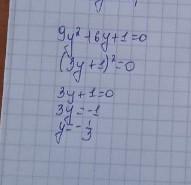 9y²+6y+1=0
(3y+1)²=0
3y+1=0
3y=-1
y=-1/3